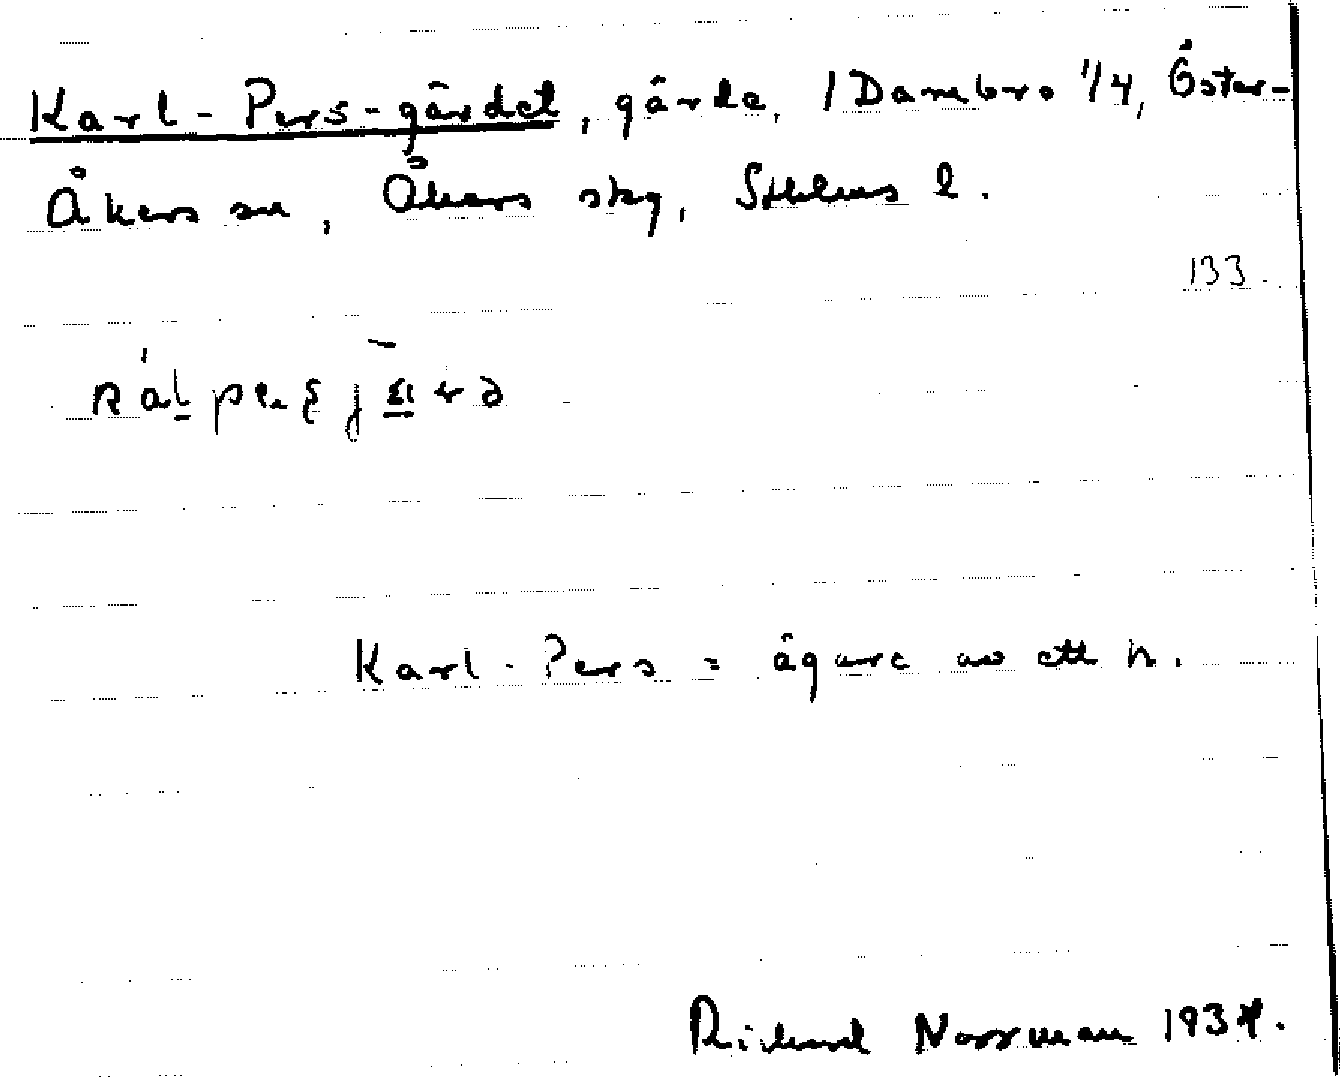 Karl-Pers-gärdet, gärde, 1 Danebro 1/4, Öster-
Åkers sn, Åkers skg, Sthlms l.
133.
Karl-Pers = ägare av ett h.
Rickard Norrman 1934.